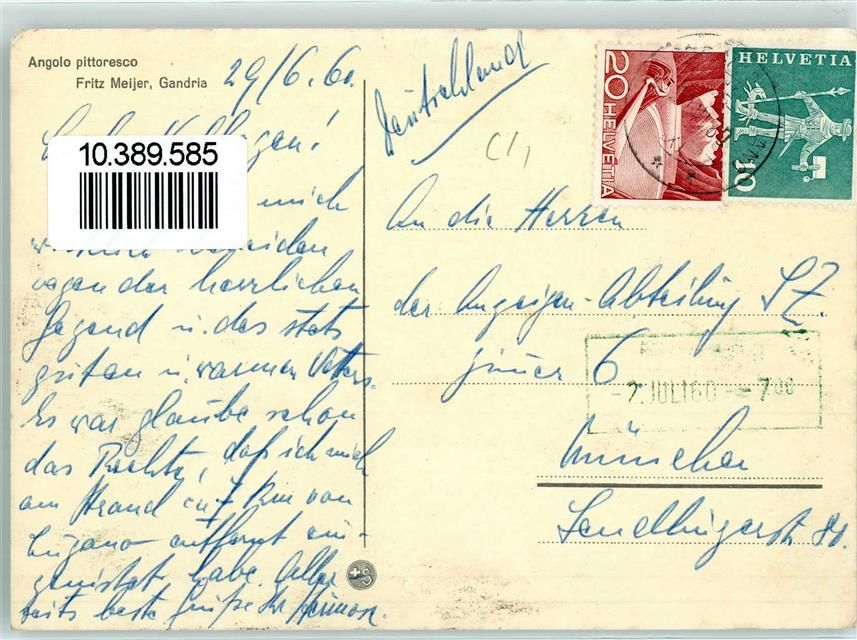 Angolo pittoresco
Fritz Meijer, Gandria
29/6.60.
10.389.585
mich
wegen der herrlichen
Gegend u. des stets
guten u. warmen
Es war glaube schon
das Rechte, daß ich mich
am Strand 7 km von
Lugano entfernt ein-
genistet habe. Aller-
seits beste Grüße Ihr
Deutschland
20 HELVETIA
HELVETIA
10
An die Herren
der Anzeigen-Abteilung SZ.
Zimmer 6
- 2. JULI 60 -- 7
München
Sendlingerstr. 80.